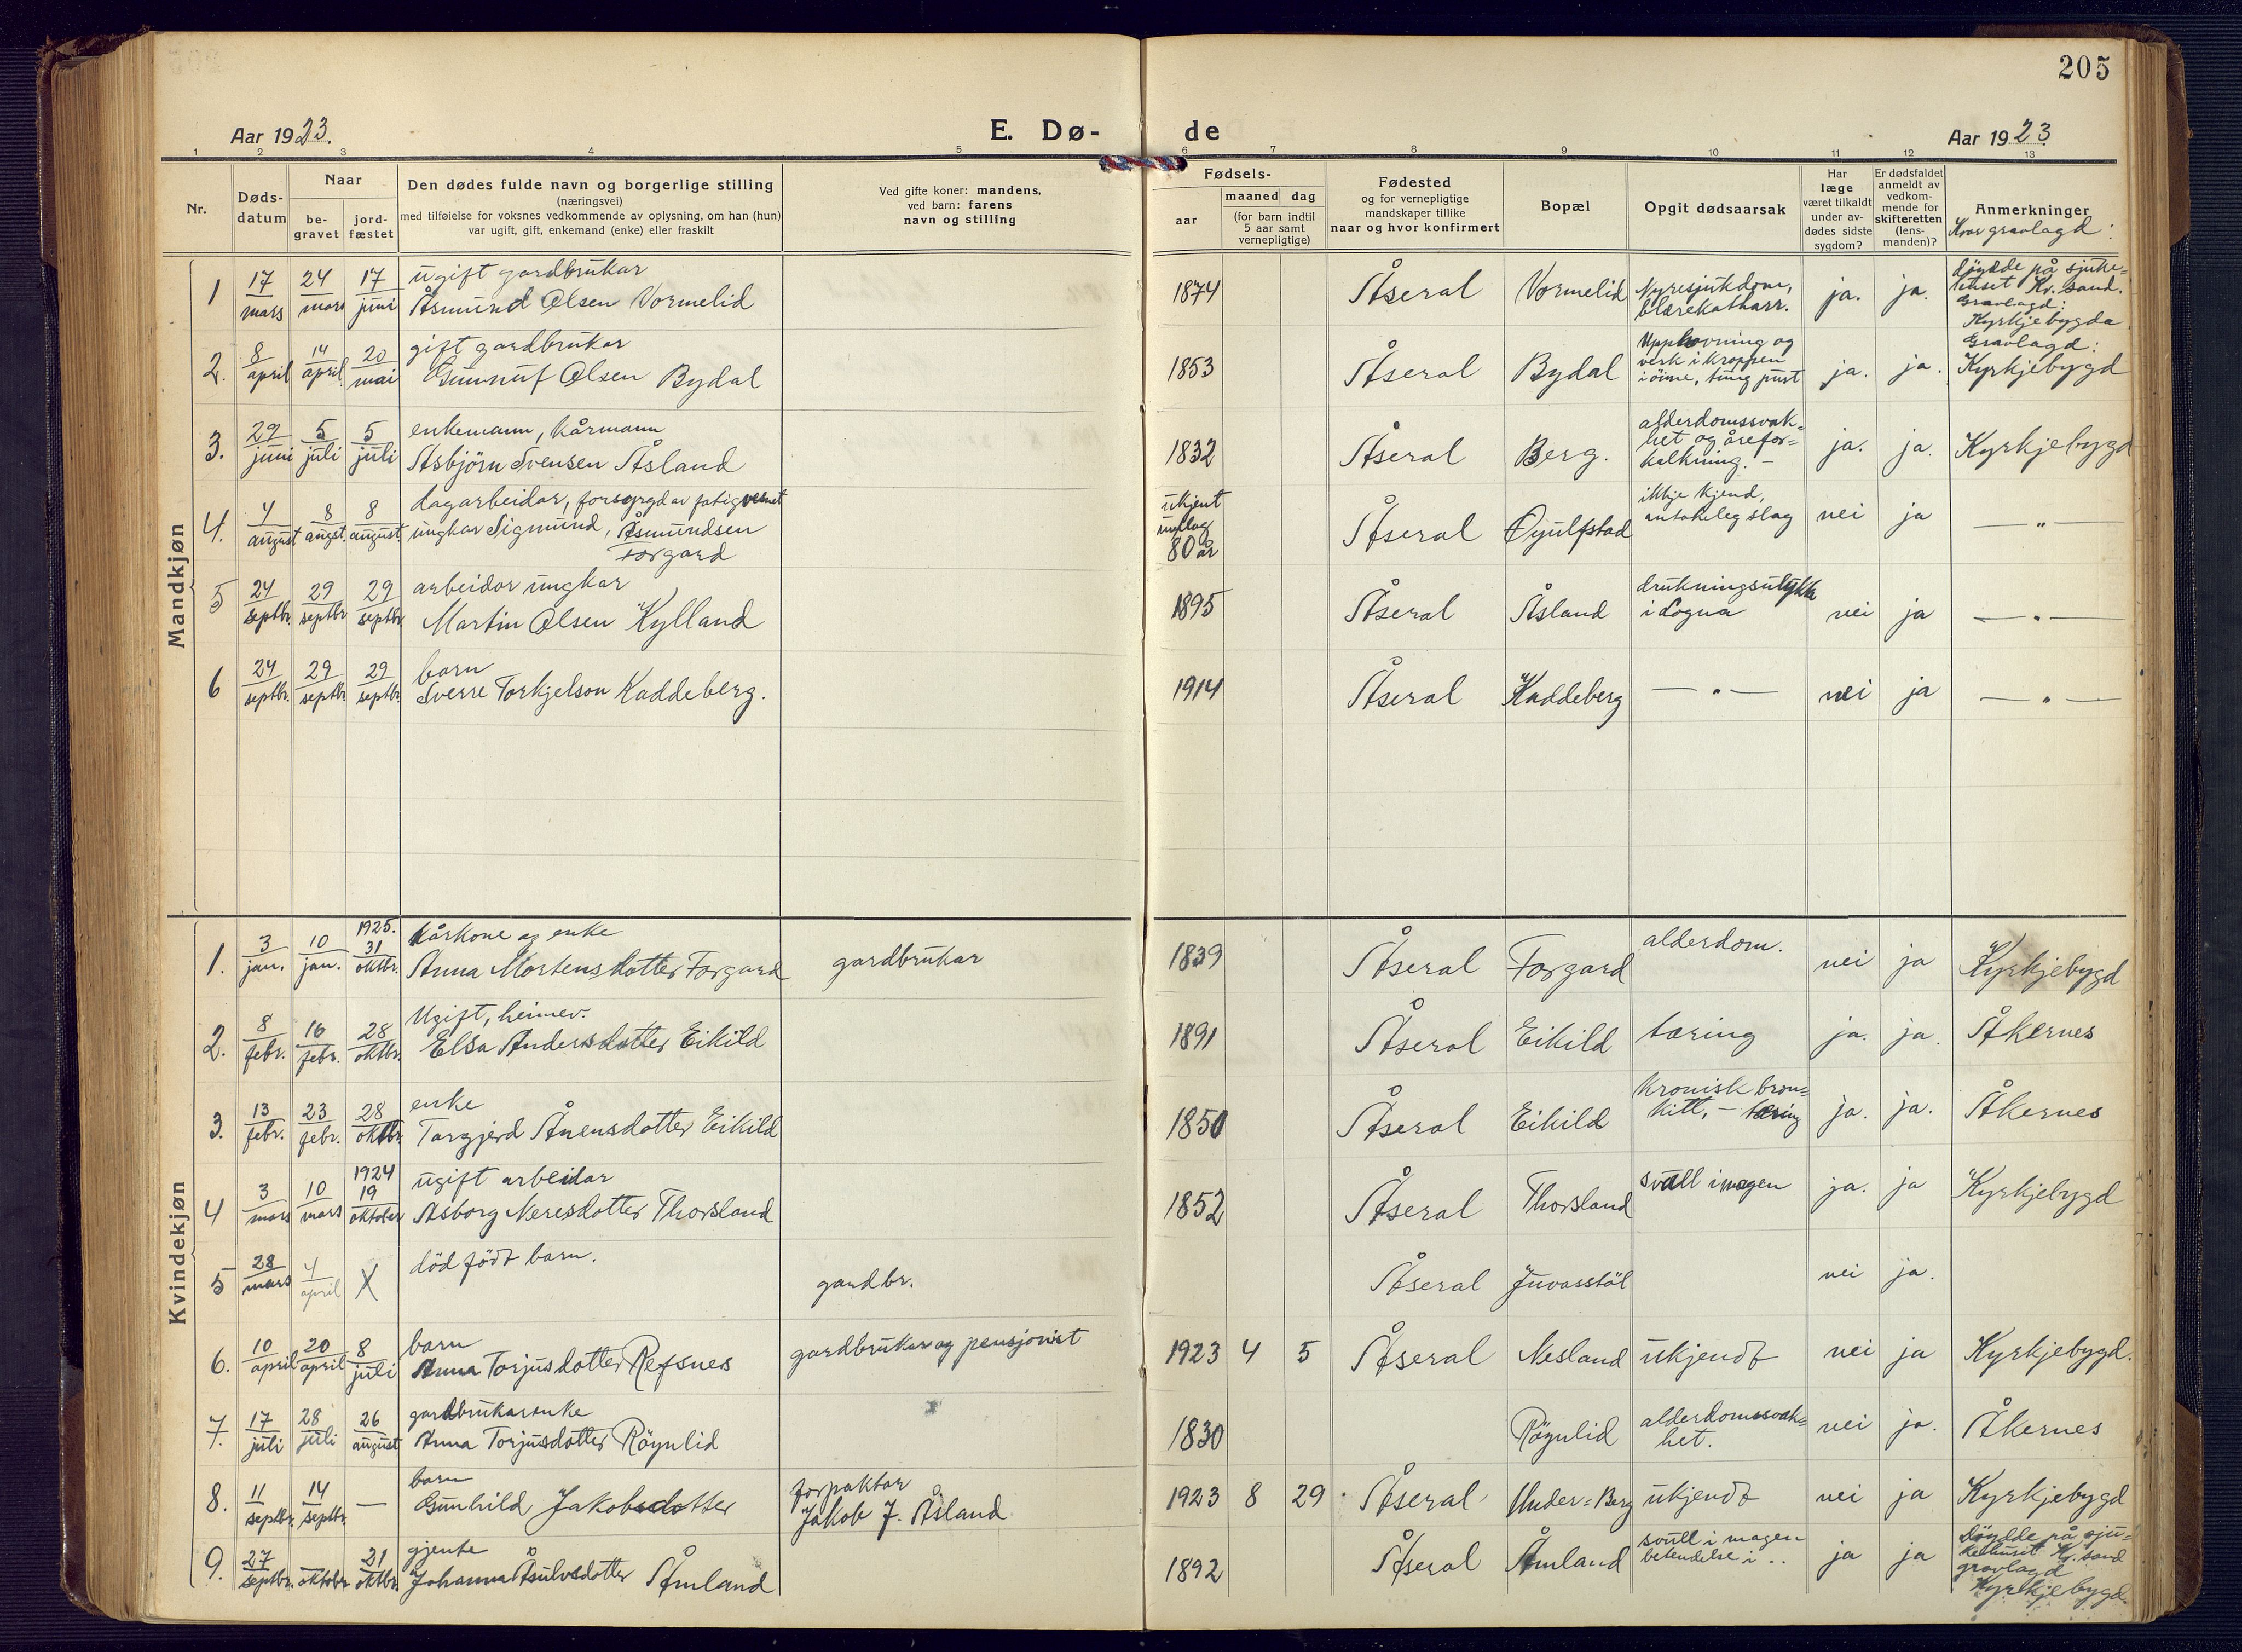 205
Aar 1923.
E. Dø-
de
Aar 1923.
1 2 3 4 5 6 7 8 9 10 11 12 13
Nr.
Døds-
datum
Naar
be-
gravet
jord-
fæstet
Den dødes fulde navn og borgerlige stilling
(næringsvei)
med tilføielse for voksnes vedkommende av oplysning, om han (hun)
var ugift, gift, enkemand (enke) eller fraskilt
Ved gifte koner: mandens,
ved barn: farens
navn og stilling
Fødsels-
aar
maaned dag
(for barn indtil
5 aar samt
vernepligtige)
Fødested
og for vernepligtige
mandskaper tillike
naar og hvor konfirmert
Bopæl
Opgit dødsaarsak
Har
læge
været tilkaldt
under av-
dødes sidste
sygdom?
Er dødsfaldet
anmeldt av
vedkom-
mende for
skifteretten
(lens-
manden)?
Anmerkninger
Kvar gravlagd:
Mandkjøn
1 17 mars 24 mars 17 juni ugift gardbrukar
Åsmund Olsen Vormelid 1874 Åseral Vormelid Nyresjukdom,
blærekatharr. ja. ja. döydde på sjuke-
huset Kr. sand.
Gravlagd:
Kyrkjebygda
2. 8 april 14 april 20 mai gift gardbrukar
Gunnuf Olsen Bydal 1853 Åseral Bydal Upphovning og
verk i kroppen
i öine, tung pust ja. ja. Gravlagd:
Kyrkjebygd
3. 29 juni 5 juli 5 juli enkemann, kårmann
Asbjörn Svensen Åsland 1832 Åseral Berg. alderdomssvak-
het og årefor-
kalkning. - ja. ja. Kyrkjebygd
4. 4 august 8 augst. 8 august dagarbeidar, forsyrgd av fatigvesnet
ungkar Sigmund, Åsmundsen
Forgard ukjent
umlag
80 år Åseral Öyulfstad ikkje kjend,
antakeleg slag nei ja — " —
5 24 septbr. 29 septbr 29 septbr. arbeidar ungkar
Martin Olsen Kylland 1895 Åseral Åsland drukningsulykke
i Logna nei ja — " —
6 24 septbr. 29 septbr 29 septbr. barn
Sverre Torkjelson Kaddeberg. 1914 Åseral Kaddeberg — " — nei ja — " —
Kvindekjøn
1. 3 jan. 10 jan. 1925. 31 oktbr. kårkone og enke
Anna Mortensdotter Forgard gardbrukar 1839 Åseral Forgard alderdom. nei ja Kyrkjebygd
2. 8 febr. 16 febr. 28 oktbr. Ugift, heimev.
Elsa Andersdotter Eikild 1891 Åseral Eikild tæring ja. ja. Åkernes
3. 13 febr. 23 febr. 28 oktbr enke
Torgjerd Ånensdotter Eikild 1850 Åseral Eikild kronisk bron-
kitt, - tæring ja. ja. Åkernes
4 3 mars 10 mars 1924 19 oktober ugift arbeidar
Asborg Neresdotter Thorsland 1852 Åseral Thorsland svull i magen ja. ja Kyrkjebygd
5 28 mars 4 april X död födt barn.
gardbr. Åseral Juvasstöl nei ja.
6. 10 april 20 april 8 juli barn
Anna Torjusdotter Refsnes gardbrukar og pensjonist 1923 4 5 Åseral Nesland ukjendt nei ja Kyrkjebygd.
7. 17 juli 28 juli 26 august gardbrukarenke
Anna Torjusdotter Röynlid 1830 Röynlid alderdomssvak-
het. nei ja. Åkernes
8. 11 septbr. 14 septbr. — barn
Gunhild Jakobsdotter forpaktar
Jakob J. Åsland 1923 8 29 Åseral Under-Berg ukjendt nei ja Kyrkjebygd
9. 27 septbr. oktobr. 21 oktbr. gjente
Johanna Åsulvsdotter Åmland 1892 Åseral Åmland svull i magen
betendelse i .. ja ja Döydde på sju-
kehuset Kr. sand
gravlagd
Kyrkjebygd.